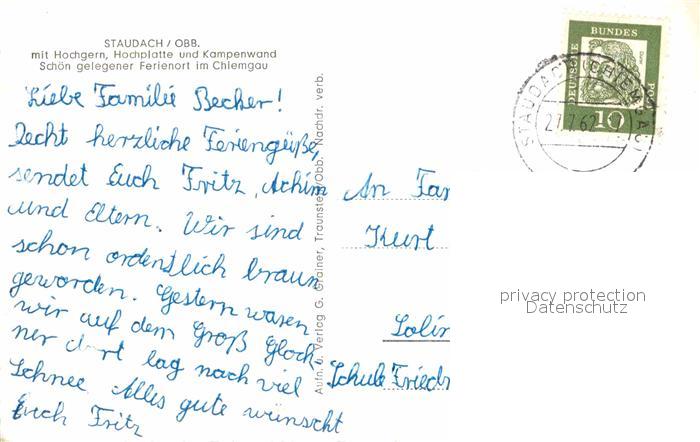 STAUDACH / OBB.
mit Hochgern, Hochplatte und Kampenwand
Schön gelegener Ferienort im Chiemgau
Liebe Familie Becher!
Recht herzliche Feriengüße,
sendet Euch Fritz, Achim
und Eltern. Wir sind
schon ordentlich braun
geworden. Gestern waren
wir auf dem Groß Glock
ner dort lag noch viel
Schnee. Alles gute wünscht
Euch Fritz
Aufn. u. Verlag G. Grainer, Traunstein/Obb. Nachdr. verb.
DEUTSCHE BUNDESPOST
10
STAUDACH (CHIEMGAU)
An Fam
Kurt
Solin
Schule Friedr
privacy protection
Datenschutz